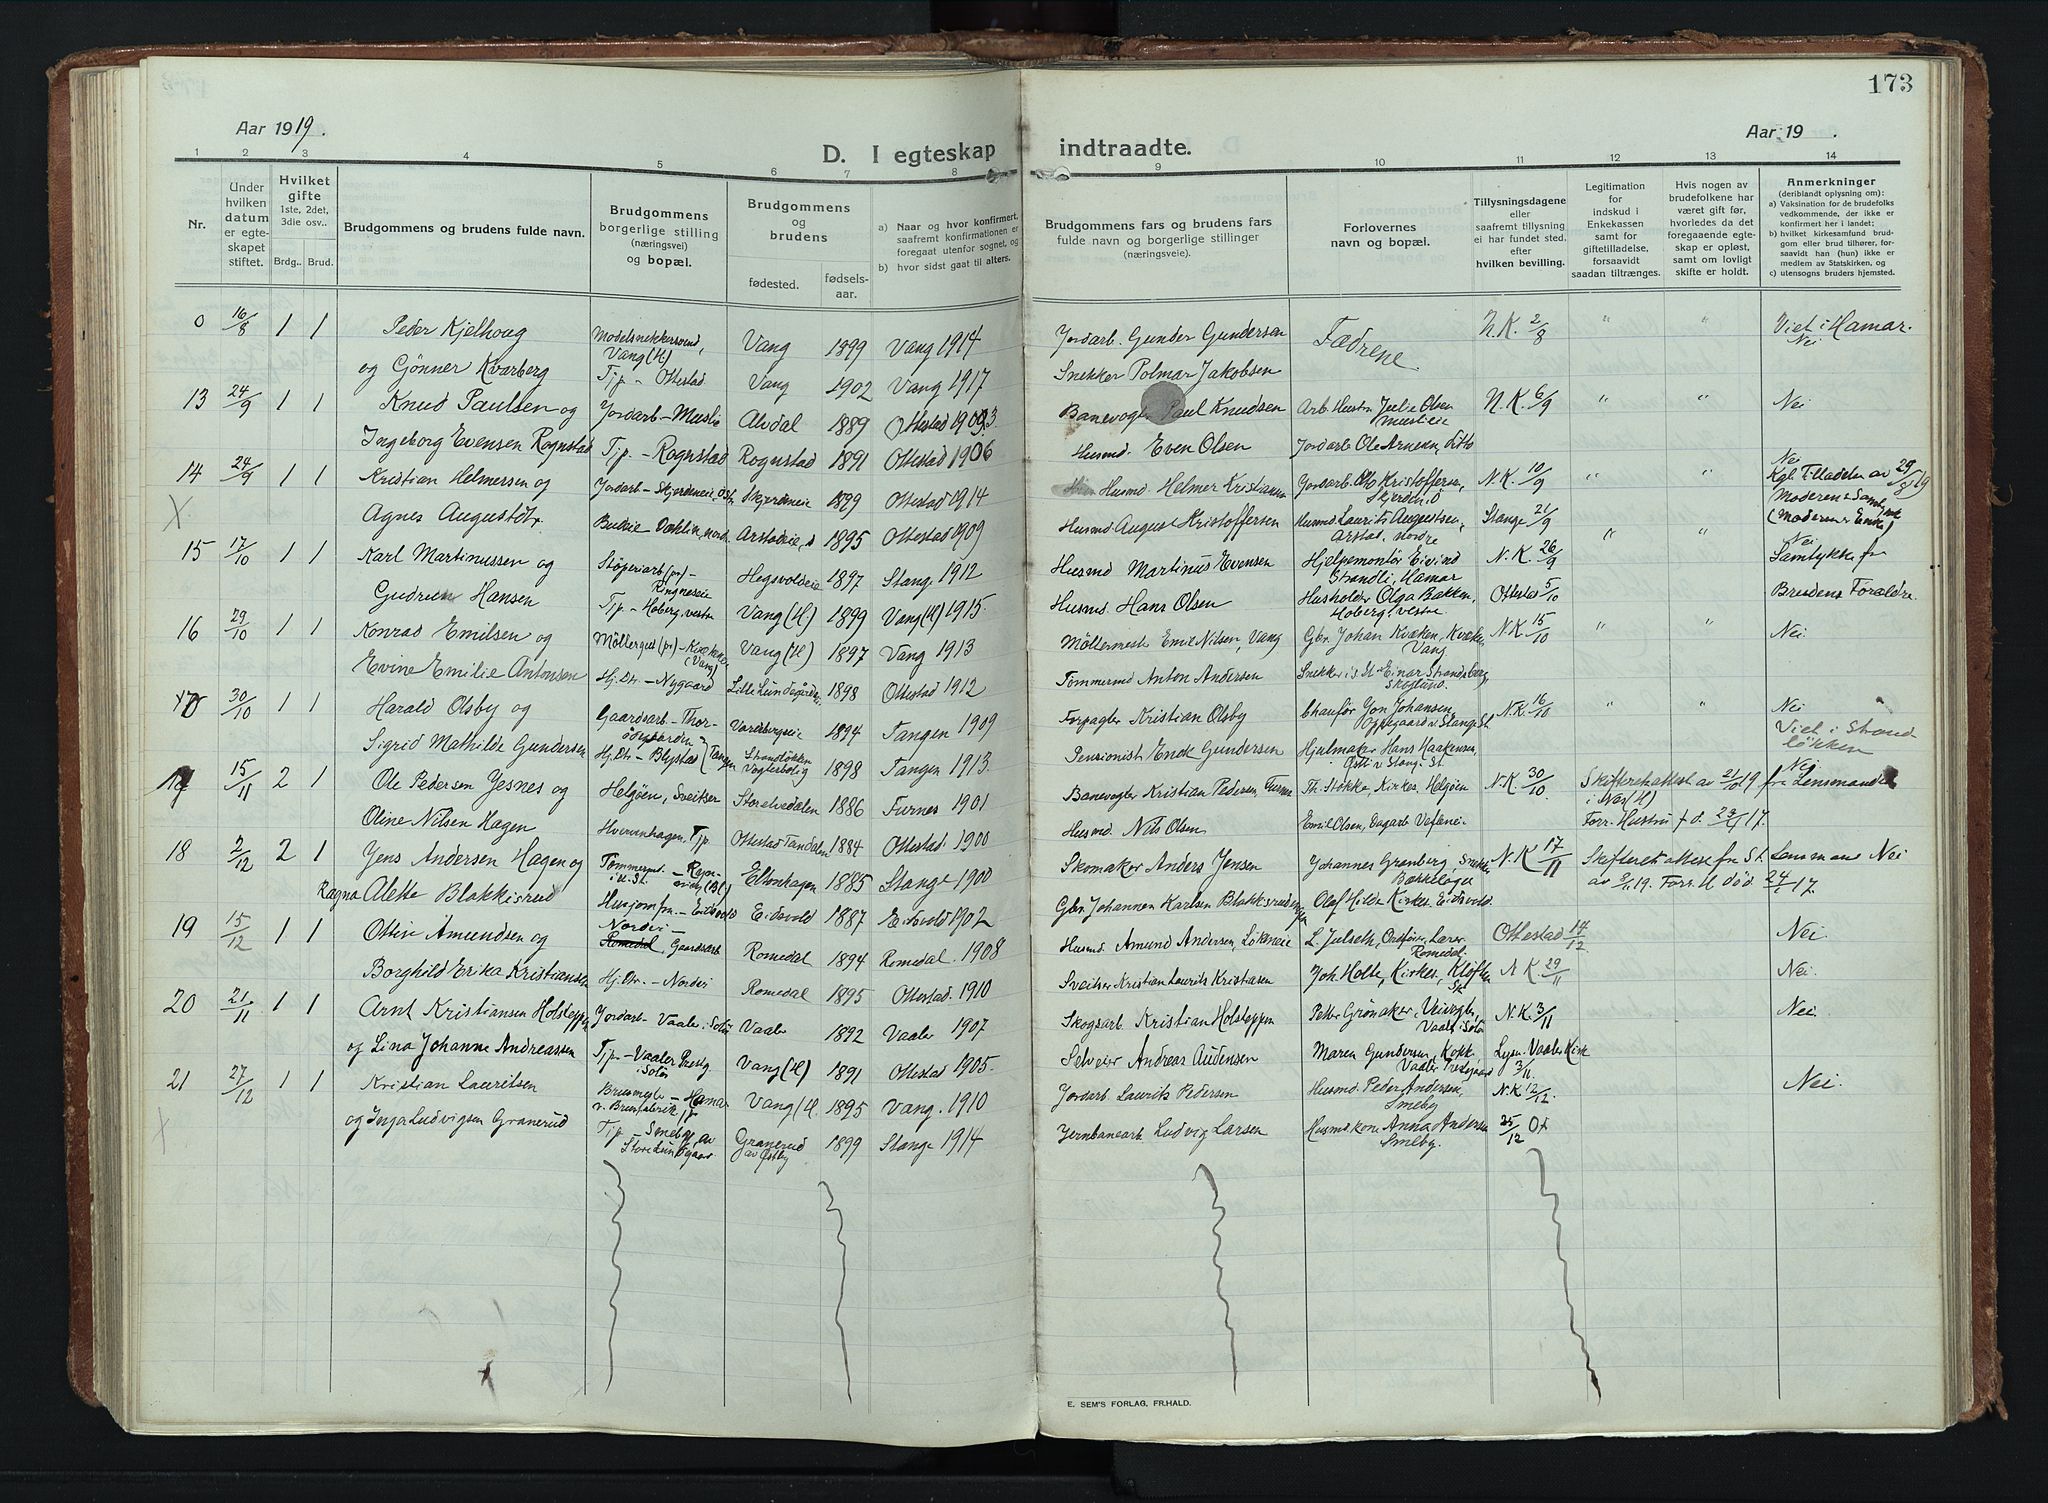 173
Aar 1919.
D. I egteskap indtraadte.
Aar 19 .
1 2 3 4 5 6 7 8 9 10 11 12 13 14
Nr.
Under hvilken datum er egteskapet stiftet.
Hvilket gifte 1ste, 2det, 3die osv..
Brdg.. Brud.
Brudgommens og brudens fulde navn.
Brudgommens borgerlige stilling (næringsvei) og bopæl.
Brudgommens og brudens
fødested.
fødsels-aar.
a) Naar og hvor konfirmert, saafremt konfirmationen er foregaat utenfor sognet, og
b) hvor sidst gaat til alters.
Brudgommens fars og brudens fars fulde navn og borgerlige stillinger (næringsveie).
Forlovernes navn og bopæl.
Tillysningsdagene eller saafremt tillysning ei har fundet sted, efter hvilken bevilling.
Legitimation for indskud i Enkekassen samt for giftetilladelse, forsaavidt saadan tiltrænges.
Hvis nogen av brudefolkene har været gift før, hvorledes da det foregaaende egteskap er opløst, samt om lovligt skifte er holdt.
Anmerkninger (deriblandt oplysning om):
a) Vaksination for de brudefolks vedkommende, der ikke er konfirmert her i landet;
b) hvilket kirkesamfund brudgom eller brud tilhører, forsaavidt han (hun) ikke er medlem av Statskirken, og
c) utensogns bruders hjemsted.
0 16/8 1 1 Peder Kjelhoug Modelsnekkersvend, Vang (H) Vang 1899 Vang 1914 Jordarb. Gunder Gundersen Fædrene N.K. 2/8 " " Viet i Hamar. Nei
og Gönner Kvarberg Tjp. - Ottestad Vang 1902 Vang 1917 Snekker Polmar Jakobsen
13 24/9 1 1 Knud Paulsen og Jordarb - Muslie Alvdal 1889 Ottestad 1903 Banevogter Paul Knudsen Arb. Hustr. Julie Olsen N.K. 6/9 " " Nei
Ingeborg Evensen Rognstad Tjp. - Rognstad Rognstad 1891 Ottestad 1906 Husmd. Even Olsen Jordarb Ole
14 24/9 1 1 Kristian Helmersen og Jordarb - Skjerdeneie, Skjerdeneie 1899 Ottestad 1914 Husmd. Helmer Kristiansen Jordarb. Kristoffersen, N.K. 10/9 " " Nei Kgl. Tilladelse av 29/8 19
X Agnes Augustdtr. Budeie - Dahlin, nord. Arstadeie, 1895 Ottestad 1909 Husmd August Kristoffersen Husmd Laurits Augustsen, Arstad, nordre Stange 21/9 (Moderen Enke)
15 17/10 1 1 Karl Martinussen og Støperiarb (pr) - Ringneseie Hegsvoldeie 1897 Stang. 1912 Husmd Martinus Evensen Hjelpemontör Eivind Strandli, Hamar N.K. 26/9 " " Nei Samtykke fr
Gudrun Hansen Tjp. - Hoberg, vestre Vang (H.) 1899 Vang (H) 1915. Husmd. Hans Olsen Husholder Olga Bakken, Hoberg vestre Ottestad 5/10 Brudens Foraldre
16 29/10 1 1 Konrad Emilsen og Möllergut (pr) - Kvækken (Vang) Vang (H) 1897 Vang 1913 Möllermester Emil Nilsen, Vang Gbr. Johan Kvæken, Kvæken Vang N.K. 15/10 " " Nei
Evine Emilie Antonsen Hj. Dtr. - Nygaard Lille Lundgårdeie 1898 Ottestad 1912 Tømmermd Anton Andersen Snekker i s. St Einar Strandsberg, Skogland.
0 30/10 1 1 Harald Olsby og Gaardsarb - Thorödegaarden 1894 Tangen 1909 Forpagter Kristian Olsby Chauför Jon Johansen, Oppegaard v. Stange St. N.K. 16/10 " " Nei
Sigrid Mathilde Gundersen Hj. Dtr. - Blystad (Tangen Strandløkken Vogterbolig 1898 Tangen 1913. Pensionist Enok Gundersen Hjulmaker Hans Haakensen, v Stang. St. Viet i Strandløkken
17 15/11 2 1 Ole Pedersen Jesnes og Helgöen, Sveitser 1886 Furnes 1901 Banevogter Kristian Pedersen, Furnes Th. Stokke, Kirkes. Helgöen N.K. 30/10 Skifteretsattest av 21/10 19 fra Lensmanden i Nes (H) Nei.
Oline Nilsen Hagen Hverunhagen, Tjp Ottestad 1884 Ottestad. 1900 Husmd. Nils Olsen Emil Olsen, Dagarb. Forr. Hustru † d. 23/1 17.
18 2/12 2 1 Jens Andersen Hagen og Tömmermd. i st. St. Eltonhagen 1885 Stange 1900 Skomaker Anders Jensen Johannes Grønberg Snekker, N.K 17/11 Skifteretsattest fra St. Lensmand Nei
Ragna Alette Blakkisrud Husjomfru - Eidsvold Eidsvold 1887 Eidsvold 1902 Gbr. Johannes Karlsen Blakkisrudengen Olaf Hilde Kirkes. Eidsvold. 19. Forr. H död. 24/ 17.
19 15/12 1 1 Ottin Amundsen og Nordvi - Romedal Gaardsarb Romedal 1894 Romedal. 1908 Husmd. Amund Andersen, Lökneie L. Julseth, Ordförer, Lærer, Romedal. Ottestad 14/12 Nei.
Borghild Erika Kristiansen Hj. Dtr. - Nordvi Romedal 1895 Ottestad. 1910 Sveitser Kristian Laurits Kristiansen Joh. Holte, Kirkes, Kløften St. N.K 29/11 Nei.
20 21/11 1 1 Arnt Kristiansen Holsteppen Jordarb - Vaaler, Solör Vaaler 1892 Vaaler 1907 Skogsarb. Kristian Holsteppen Petter Grönaker, Veivogter, Vaaler i Solör N.K. 3/11 Nei.
og Lina Johanne Andreassen Tjp. - Vaaler Prestg i Solör Vang (H) 1891 Ottestad 1905. Selveier Andreas Audensen Maren Gundersen, Kokk. Vaaler Prestgaard Lysn. Vaaler Kirk 3/11.
21 27/12 1 1 Kristian Lauritsen - Hamar v. Brusfabrik Vang (H. 1895 Vang. 1910 Jordarb. Laurits Pedersen Husmd. Peder Andersen, Smeby N.K 12/12. Nei.
X og Inga Ludvigsen Granerud Tjp - Smeby av Store Lundgaar. Granerud av Östby 1899 Stange 1914 Jernbanearb. Ludvig Larsen Husmd kone Anna Andersen Smeby. 25/12 Ot
E. SEM'S FORLAG, FR.HALD.